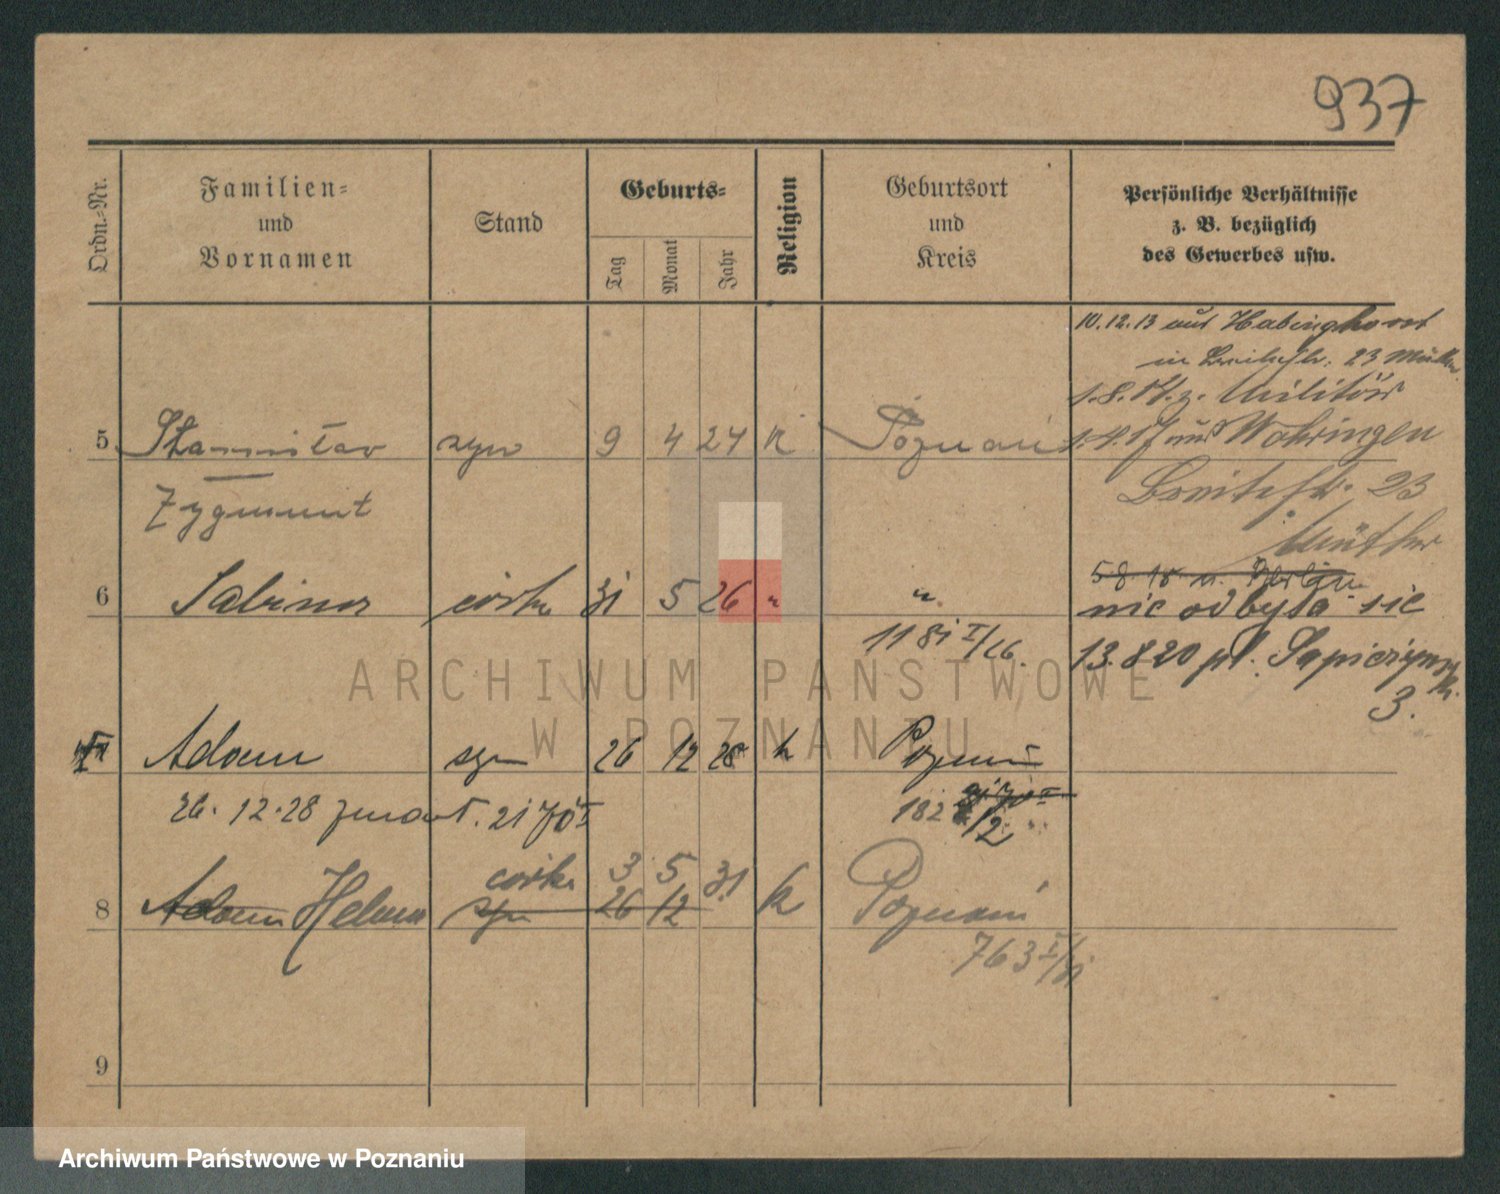 937
Ordn.-Nr.
Familien-
und
Vornamen
Stand
Geburts-
Tag
Monat
Jahr
Religion
Geburtsort
und
Kreis
Persönliche Verhältnisse
z. B. bezüglich
des Gewerbes usw.
10.12.13 aus Habinghorst
in Breitestr. 23 Mutter
1.8.17. z. Militär
5 Stanisław syn 9 4 24 K Poznań
Wohringen
Breitestr. 23
Zygmunt
Mutter
6 Sabina córka 31 5 26 " "
nie odbyła się
1181 I/26.
13.8 20 pl. Sapieżyński
3.
ARCHIWUM PAŃSTWOWE
W POZNANIU
Adam syn 26 12 28 k Poznań
26.12.28 zmarł. 2170 I
182
córka 3 5 31
8 Adam Helena syn 26 12 k Poznań
763 I/31
9
Archiwum Państwowe w Poznaniu